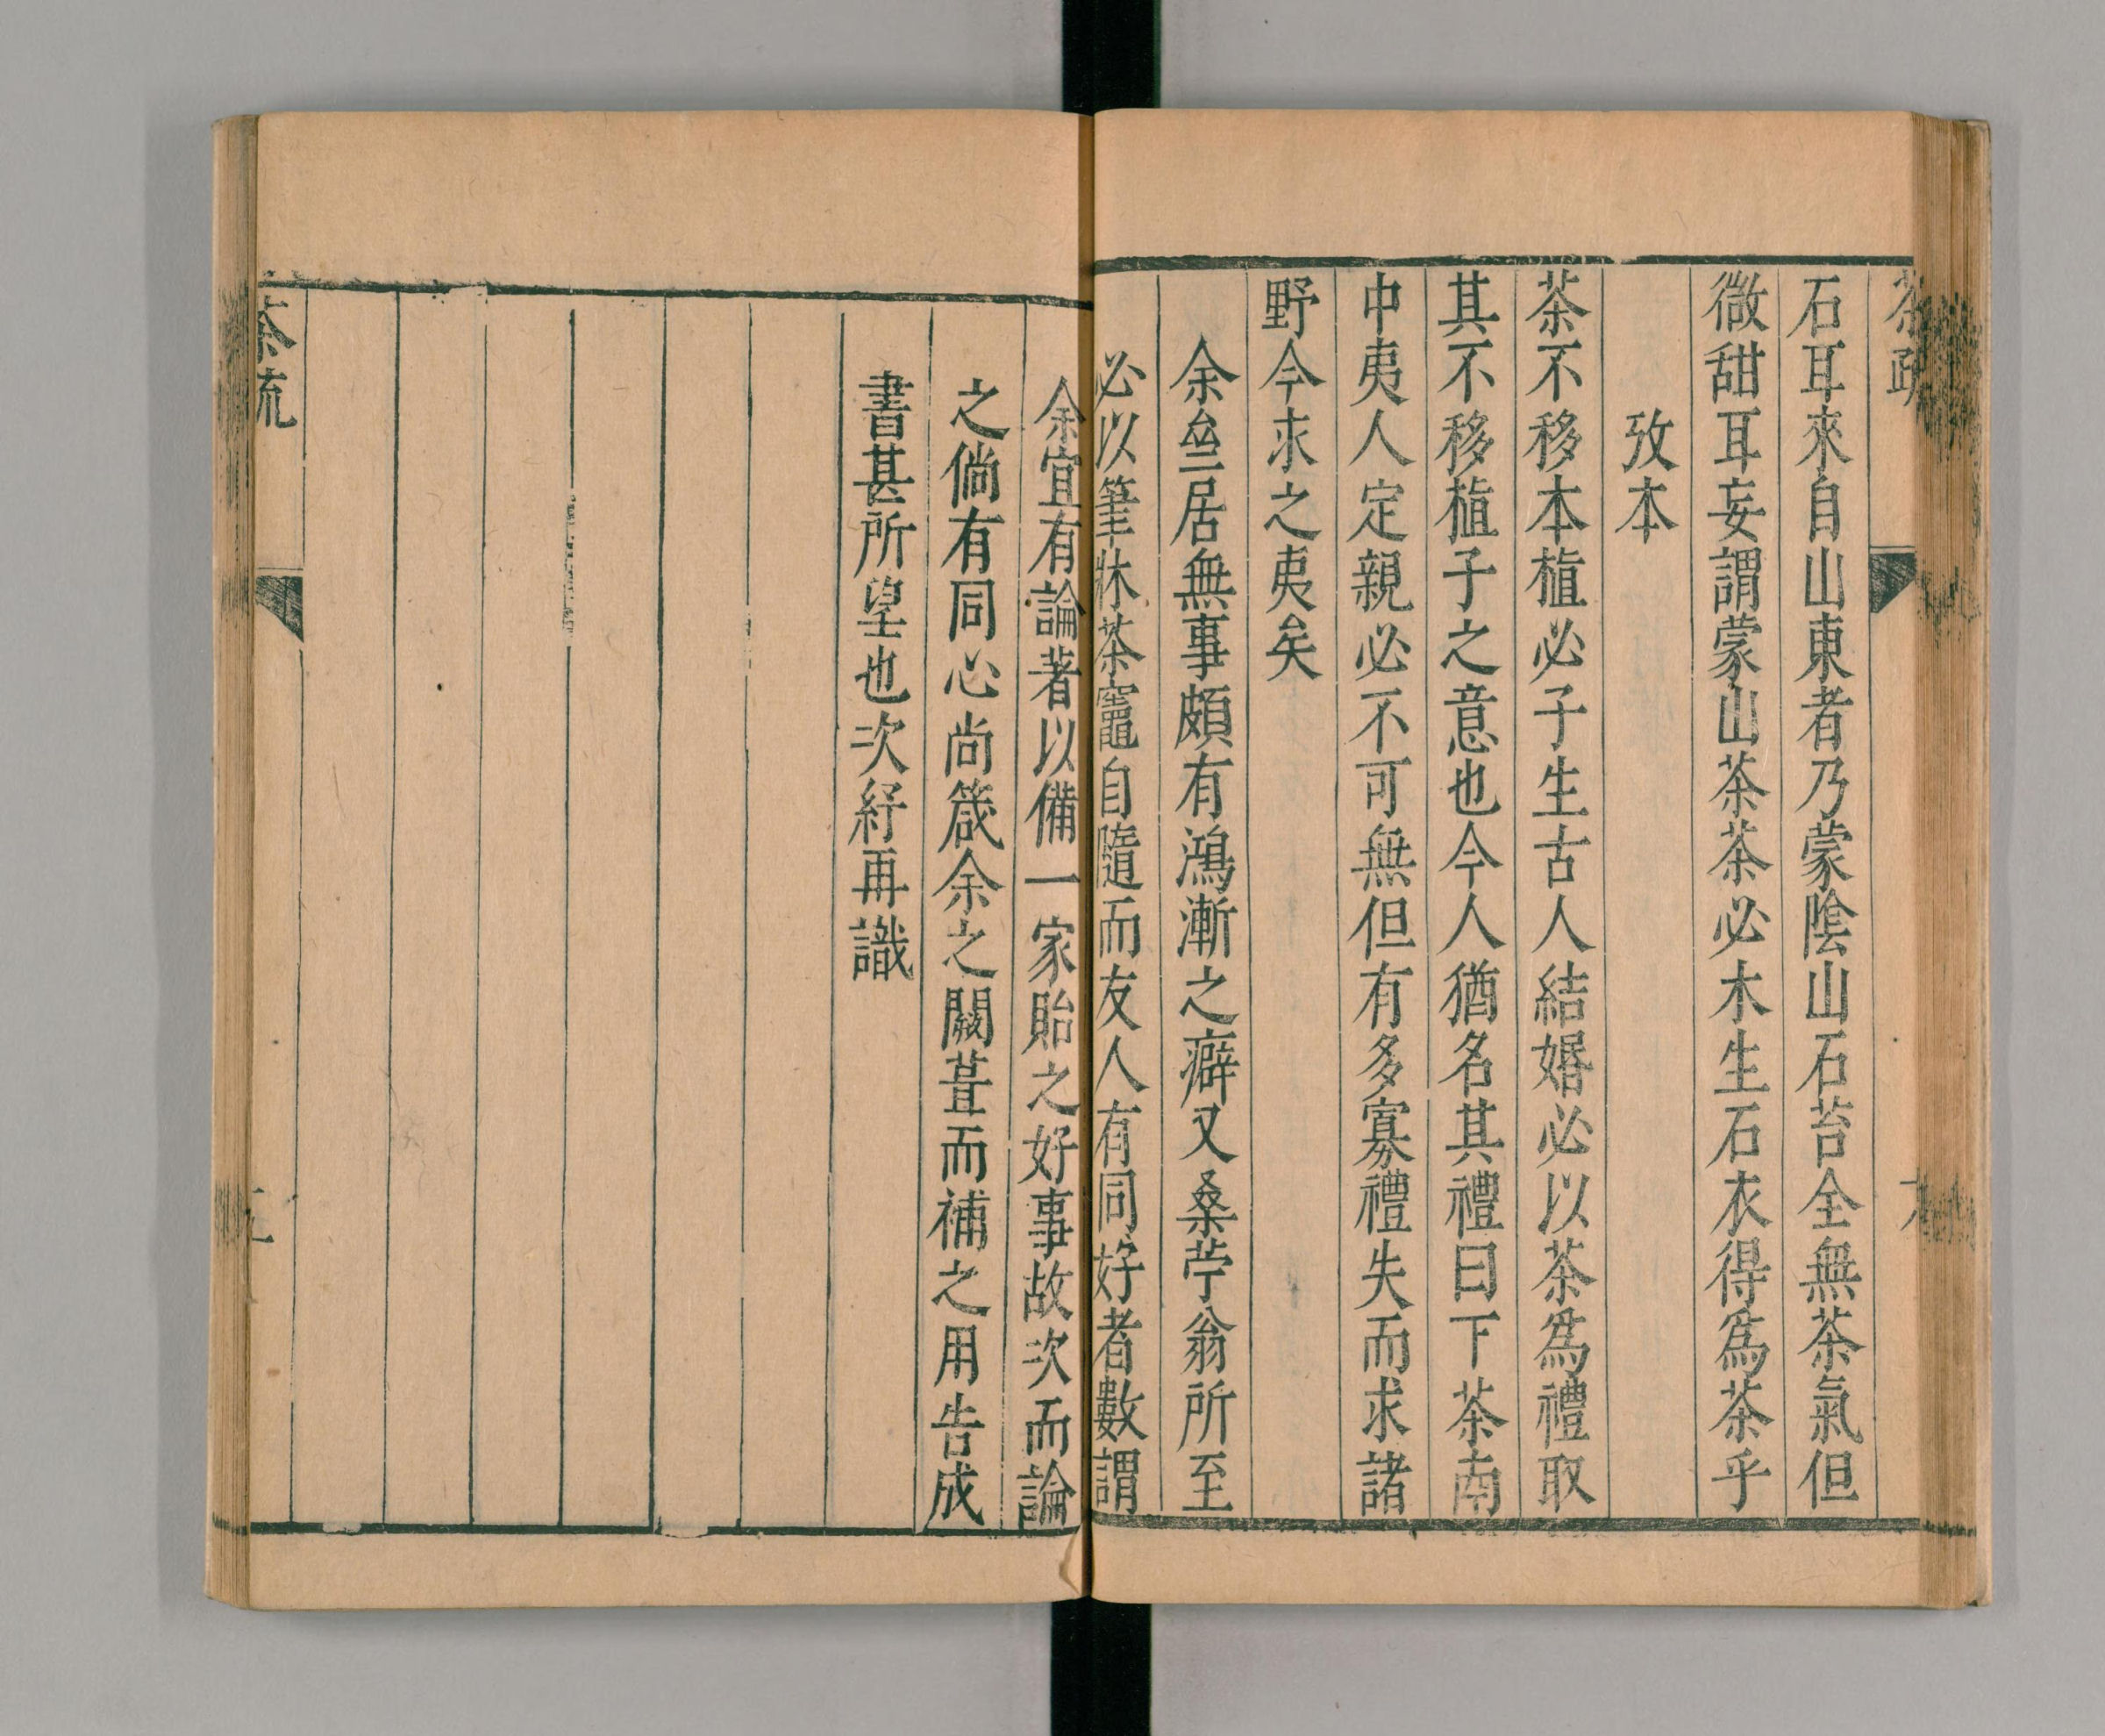 茶疏
石耳來自山東者乃蒙陰山石苔全無茶氣但
微甜耳妄謂蒙山茶茶必木生石衣得爲茶乎
攷本
茶不移本植必子生古人結婚必以茶爲禮取
其不移植子之意也今人猶名其禮曰下茶南
中夷人定親必不可無但有多寡禮失而求諸
野今求之夷矣
余𡊮居無事頗有鴻漸之癖又桑苧翁所至
必以筆牀茶竈自隨而友人有同好者數謂
余宜有論著以備一家貽之好事故次而論
之倘有同心尚箴余之闕葺而補之用告成
書甚所望也次紓再識
茶疏